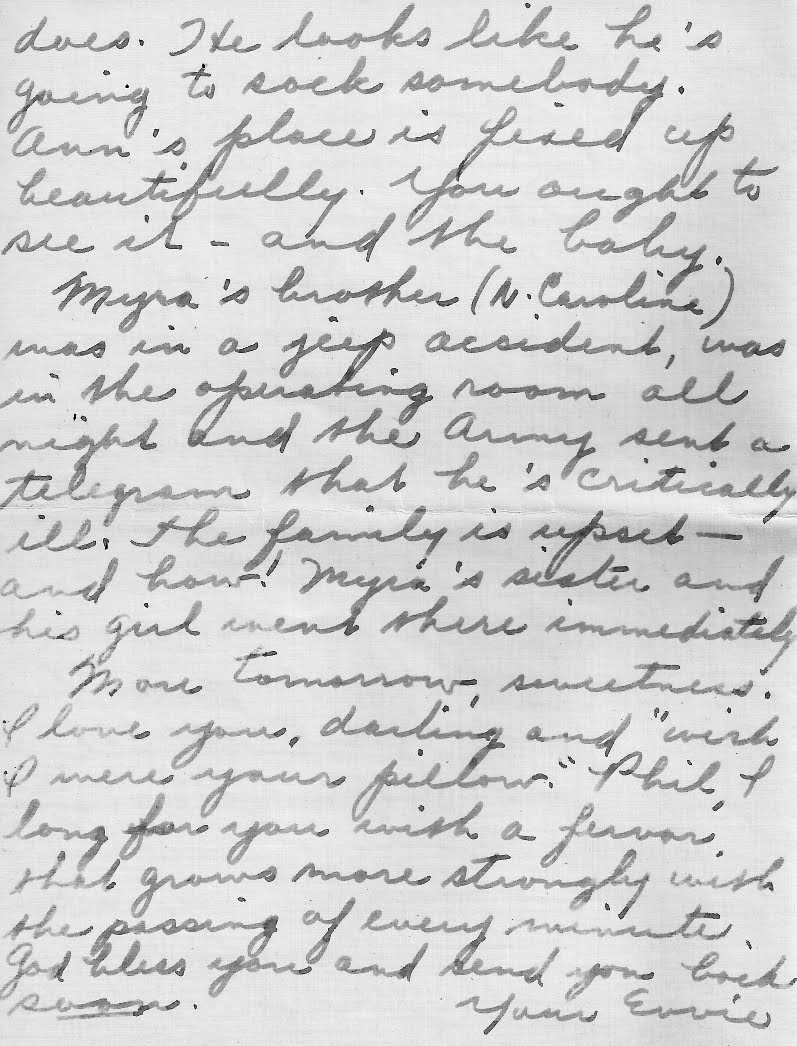 does. He looks like he's
going to sock somebody.
Ann's place is fixed up
beautifully. You ought to
see it - and the baby.
Myra's brother (N. Caroline)
was in a jeep accident, was
in the operating room all
night and the Army sent a
telegram that he's critically
ill. The family is upset —
and how! Myra's sister and
his girl went there immediately
More tomorrow, sweetness.
I love you, darling and "wish
I were your pillow." Phil, I
long for you with a fervor
that grows more strongly with
the passing of every minute.
God bless you and send you back
soon. Your Evvie